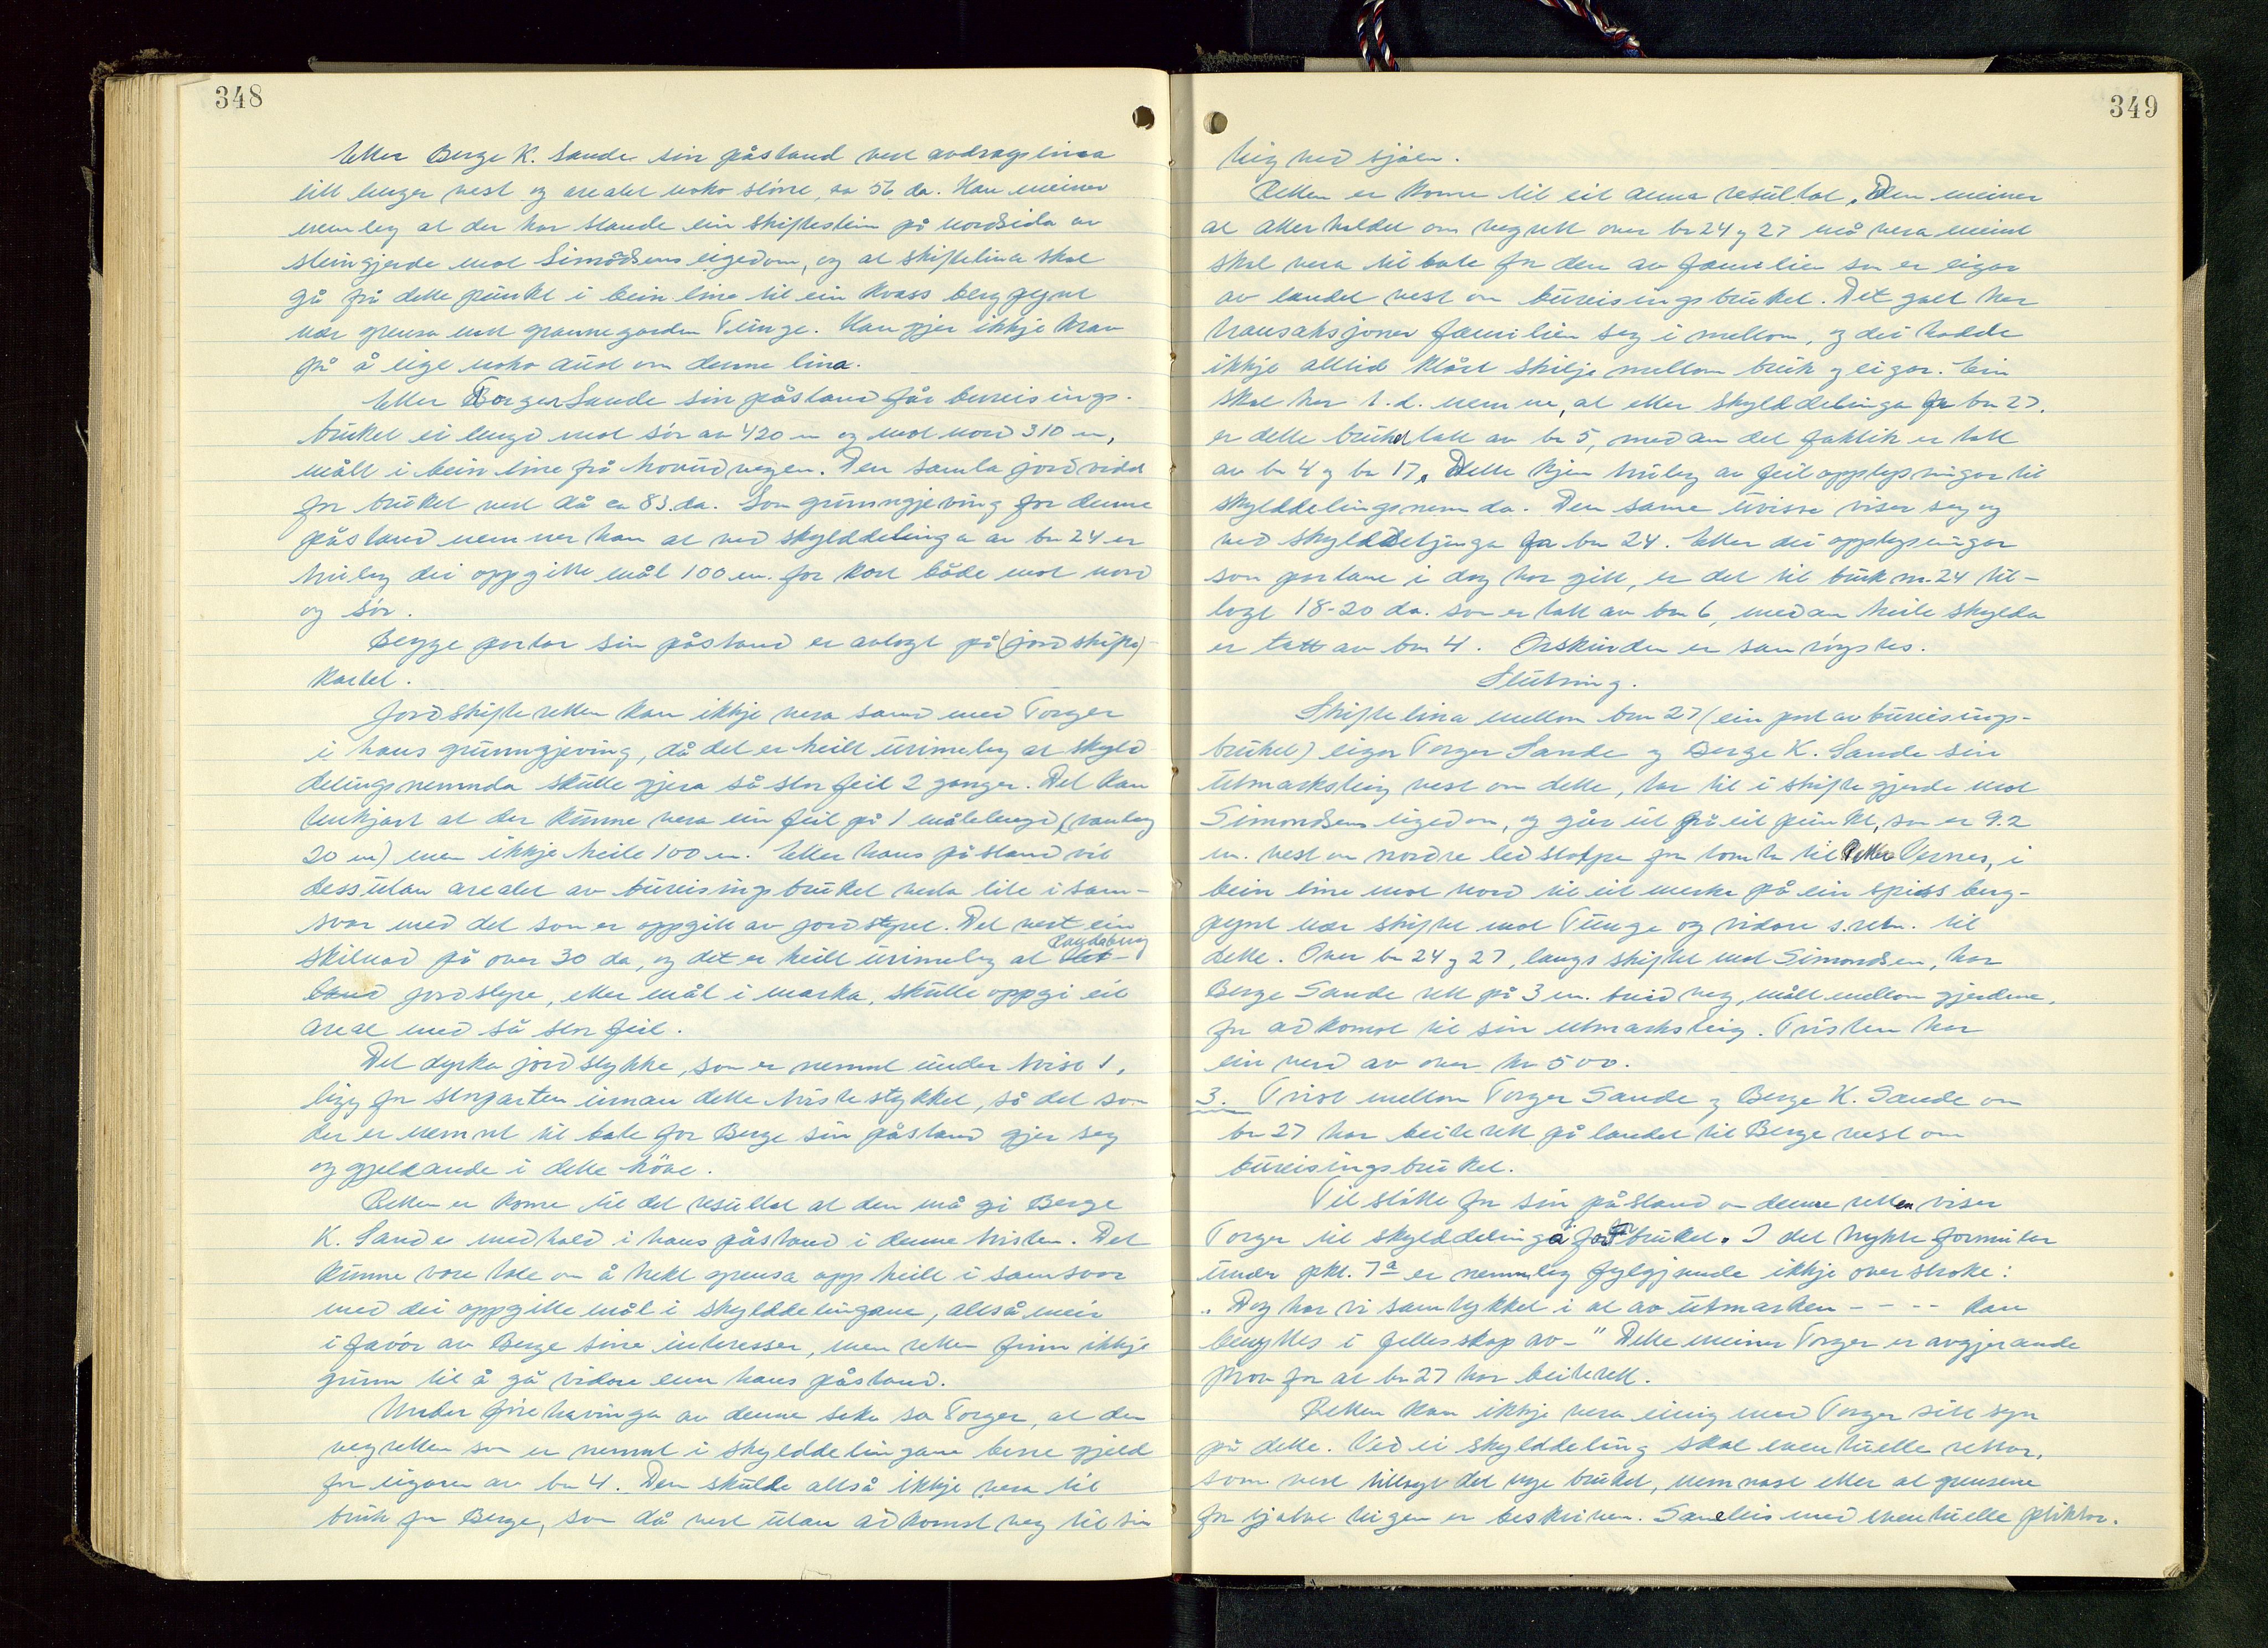 348
Etter Berge K. Sande sin påstand vert avdragslina
litt lenger vest og arealet noko större, ca 56 da. Han meiner
nemleg at der har stande ein skiftestein på nordsida av
steingjerde mot Simondsens eigedom, og at skiftelina skal
gå frå dette punkt i bein line til ein kvass bergpynt
nær grensa mot grannegarden Tunge. Han gjer ikkje krav
på å eige noko aust om denne lina.
Etter Torger Sande sin påstand får bureisings-
bruket ei lengd mot sör av 420 m og mot nord 310 m,
målt i bein line frå hovudvegen. Den samla jordvidd
for bruket vert då ca 83 da. Som grunngjeving for denne
påstand nemner han at ved skylddelinga av bn 24 er
truleg dei oppgitte mål 100 m. for kort både mot nord
og sör.
Begge partar sin påstand er avlagt på (jordskifte)-
kartet.
Jordskifteretten kan ikkje vera samd med Torger
i hans grunngjeving, då det er heilt urimeleg at skyld
delingsnemnda skulle gjera så stor feil 2 ganger. Det kan
tenkjast at der kunne vera ein feil på 1 målelengd (vanleg
20 m) men ikkje heile 100 m. Etter hans påstand vil
dessutan arealet av bureisingsbruket verta lite i sam-
svar med det som er oppgitt av jordstyret. Det vert ein
skilnad på over 30 da, og det er heilt urimeleg at Randaberg
jordstyre, etter mål i marka, skulle oppgi eit
areal med så stor feil.
Det dyrka jordstykke, som er nemnt under tvist 1,
ligg for storparten innan dette tvistestykket, så det som
der er nemnt til bate for Berge sin påstand gjer seg
og gjeldande i dette höve.
Retten er kome til det resultat at den må gi Berge
K. Sande medhald i hans påstand i denne tvisten. Det
kunne vore tale om å trekt grensa opp heilt i samsvar
med dei oppgitte mål i skylddelingane, altså meir
i favör av Berge sine interesser, men retten finn ikkje
grunn til å gå vidare enn hans påstand.
Under förehavinga av denne saka sa Torger, at den
vegretten som er nemnt i skylddelingane berre gjeld
for eigaren av bn 4. Den skulde altså ikkje vera til
bruk for Berge, som då vert utan adkomstveg til sin
349
teig ved sjöen.
Retten er kome til eit anna resultat. Den meiner
at atterhaldet om vegrett over bn 24 og 27 må vera meint
skal vera til bate for den av familien som er eigar
av landet vest om bureisingsbruket. Det galt her
transaksjoner familien seg i mellom, og dei hadde
ikkje alltid klårt skilje mellom bruk og eigar. Ein
skal her t.d. nemne, at etter skylddelinga for bn 27.
er dette bruket tatt av bn 5, medan det faktisk er tatt
av bn 4 og bn 17. Dette kjem truleg av feil opplysningar til
skylddelingsnemnda. Den same uvisse viser seg og
ved skylddelinga for bn 24. Etter dei opplysningar
som partane i dag har gitt, er det til bruk nr. 24 til-
lagt 18-20 da. som er tatt av bn 6, medan heile skylda
er tatt av bn 4. Orskurden er samröystes.
Slutning.
Skiftelina mellom bn 27 (ein part av bureisings-
bruket) eigar Torger Sande og Berge K. Sande sin
utmarksteig vest om dette, tar til i skiftegjerde mot
Simondsens eigedom, og går ut frå eit punkt, som er 9.2
m. vest om nordre ledstolpe for tomta til Petter Vernes, i
bein line mot nord til eit merke på ein spiss berg-
pynt nær skiftet mot Tunge og vidare s.retn. til
dette. Over bn 24 og 27, langs skiftet mot Simondsen, har
Berge Sande rett på 3 m. breid veg, målt mellom gjerdene,
for adkomst til sin utmarksteig. Tvisten har
ein verd av over kr 500.
3. Tvist mellom Torger Sande og Berge K. Sande om
bn 27 har beiterett på landet til Berge vest om
bureisingsbruket.
Til stötte for sin påstand om denne retten viser
Torger til skylddelinga for bruket. I det trykte formular
under pkt. 7a er nemnleg fylgjande ikkje overstroke:
"Dog har vi samtykket i at av utmarken - - - - kan
benyttes i fellesskap av -" Dette meiner Torger er avgjerande
prov for at bn 27 har beiterett.
Retten kan ikkje vera einig med Torger sitt syn
på dette. Ved ei skylddeling skal eventuelle rettar,
som vert tillagt det nye bruket, nemnast etter at grensene
for sjölve teigen er beskriven. Sameleis med eventuelle plikter.